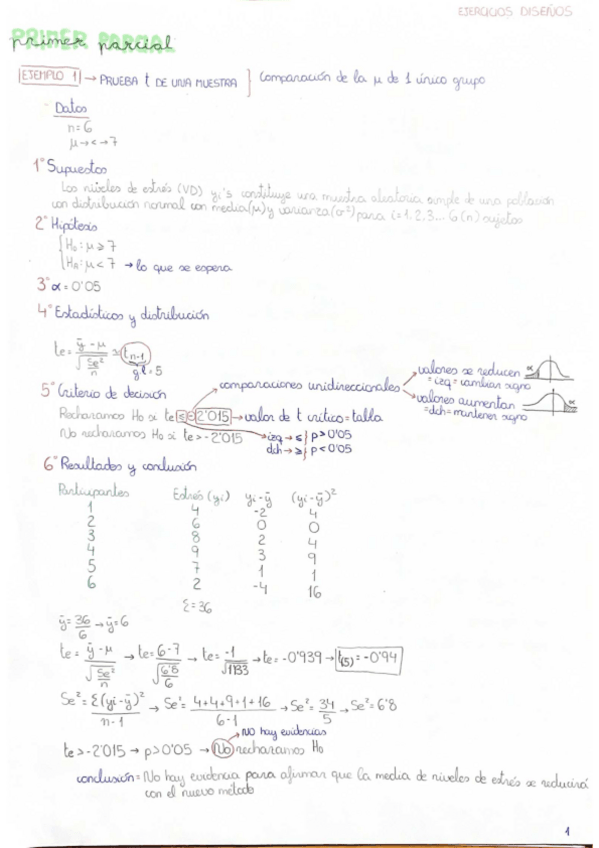 EJERCICIOS DISEÑOS
PRIMER PARCIAL
primer parcial
EJEMPLO 1 → PRUEBA t DE UNA MUESTRA } Comparación de la μ de 1 único grupo
Datos
n=6
μ→<→7
1° Supuestos
Los niveles de estrés (VD) yi's constituye una muestra aleatoria simple de una población
con distribución normal con media(μ) y varianza(σ²) para i=1,2,3... 6 (n) sujetos
2° Hipótesis
H₀: μ ≥ 7
HA: μ < 7 → lo que se espera
3° α = 0'05
4° Estadísticos y distribución
te = ȳ - μ / √(Se²/n) ≈ t n-1
gl = 5
5° Criterio de decisión
comparaciones unidireccionales
valores se reducen
= izq = cambiar signo
α
valores aumentan
= dch = mantener signo
α
Rechazamos H₀ si te ≤ -2'015 → valor de t crítico = tabla
No rechazamos H₀ si te > -2'015
izq → ≤ } p > 0'05
dch → ≥ } p < 0'05
6° Resultados y conclusión
Participantes Estrés (yi) yi-ȳ (yi-ȳ)²
1 4 -2 4
2 6 0 0
3 8 2 4
4 9 3 9
5 7 1 1
6 2 -4 16
Σ = 36
ȳ = 36/6 → ȳ = 6
te = ȳ - μ / √(Se²/n) → te = 6-7 / √(6'8/6) → te = -1 / √1'133 → te = -0'939 → t(5) = -0'94
Se² = Σ(yi-ȳ)² / n-1 → Se² = 4+4+9+1+16 / 6-1 → Se² = 34/5 → Se² = 6'8
NO hay evidencias
te > -2'015 → p > 0'05 → No rechazamos H₀
conclusión = No hay evidencia para afirmar que la media de niveles de estrés se reducirá
con el nuevo método
1